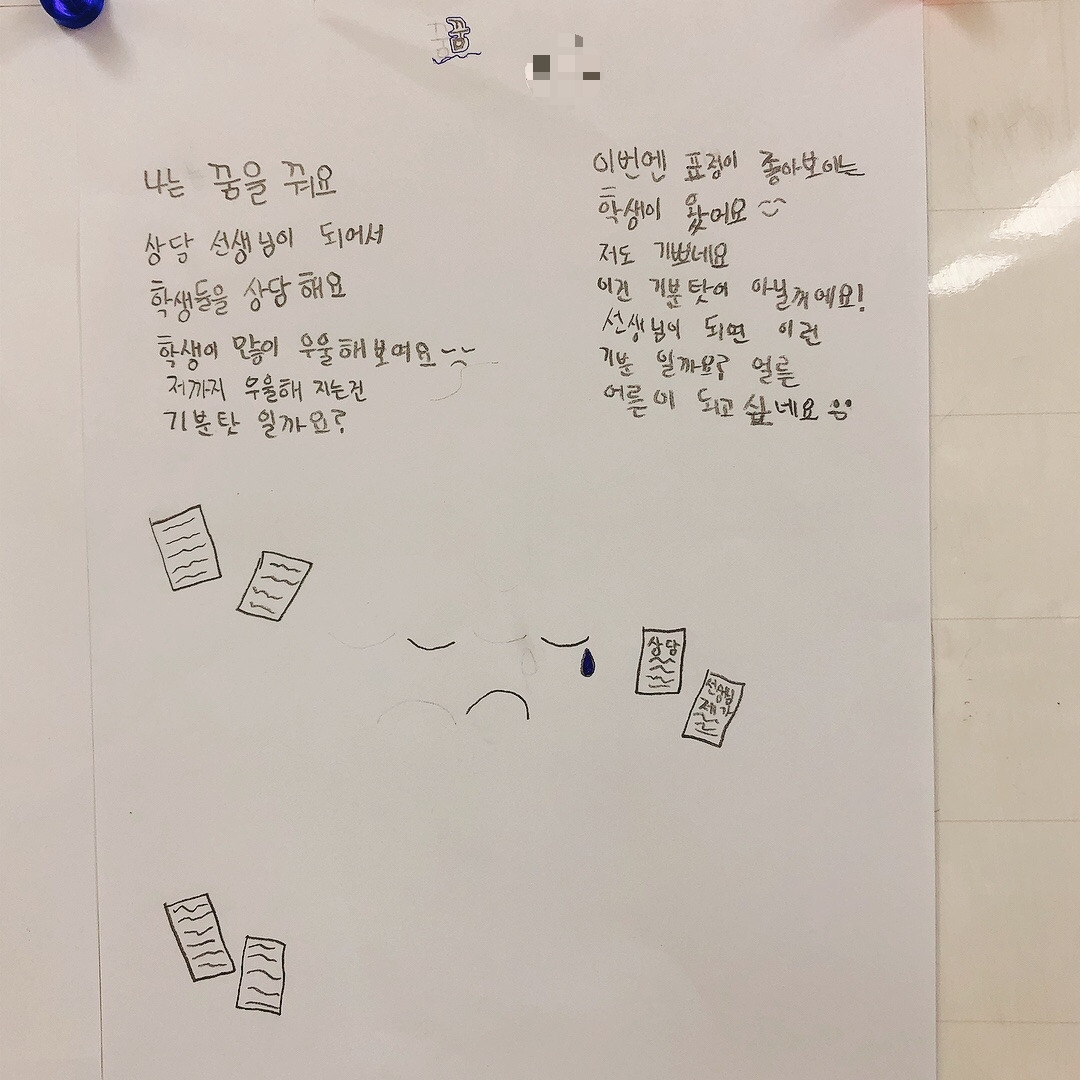 꿈
나는 꿈을 꿔요
상담 선생님이 되어서
학생들을 상담해요
학생이 많이 우울해보여요
저까지 우울해 지는건
기분탓 일까요?
이번엔 표정이 좋아보이는
학생이 왔어요
저도 기쁘네요
이건 기분탓이 아닐꺼예요!
선생님이 되면 이런
기분 일까요? 얼른
어른이 되고싶네요
상담
선생님
제가